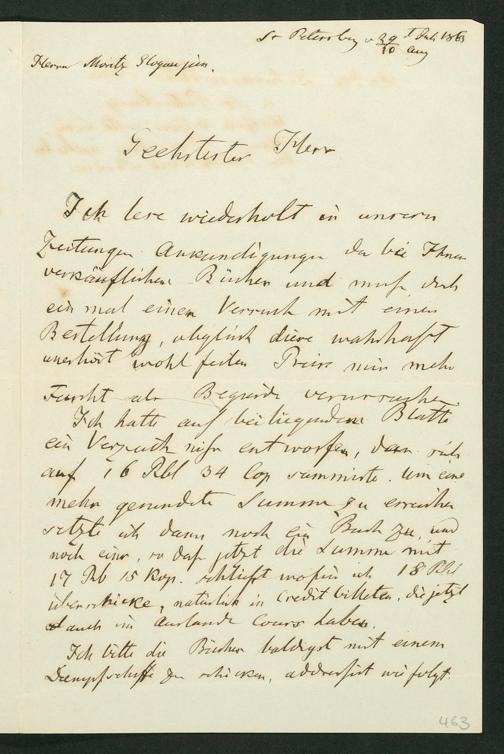 St Petersburg d 29 Juli 1863
10 Aug
Herrn Moritz Glogau jun.
Geehrtester Herr
Ich lese wiederholt in unsern
Zeitungen Ankundigungen der bei Ihnen
verkäuflichen Bücher und muß doch
ein mal einen Versuch mit einer
Bestellung, obgleich diese wahrhaft
unerhört wohlfeilen Preise mir mehr
Furcht als Begierde verursachen
Ich hatte auf beiliegendem Blatte
ein Verzeichniß entworfen, dass sich
auf 16 Rbl 34 Cop summirte. Um eine
mehr gerundete Summe zu erreichen
setzte ich dann noch ein Buch zu, und
noch eins, so daß jetzt die Summe mit
17 Rb 15 Kop. schließt wofür ich 18 Rbl
überschicke, natürlich in Creditbilleten, die jetzt
auch im Auslande Cours haben.
Ich bitte die Bücher baldigst mit einem
Dampfschiffe zu schicken, addressirt wie folgt.
463